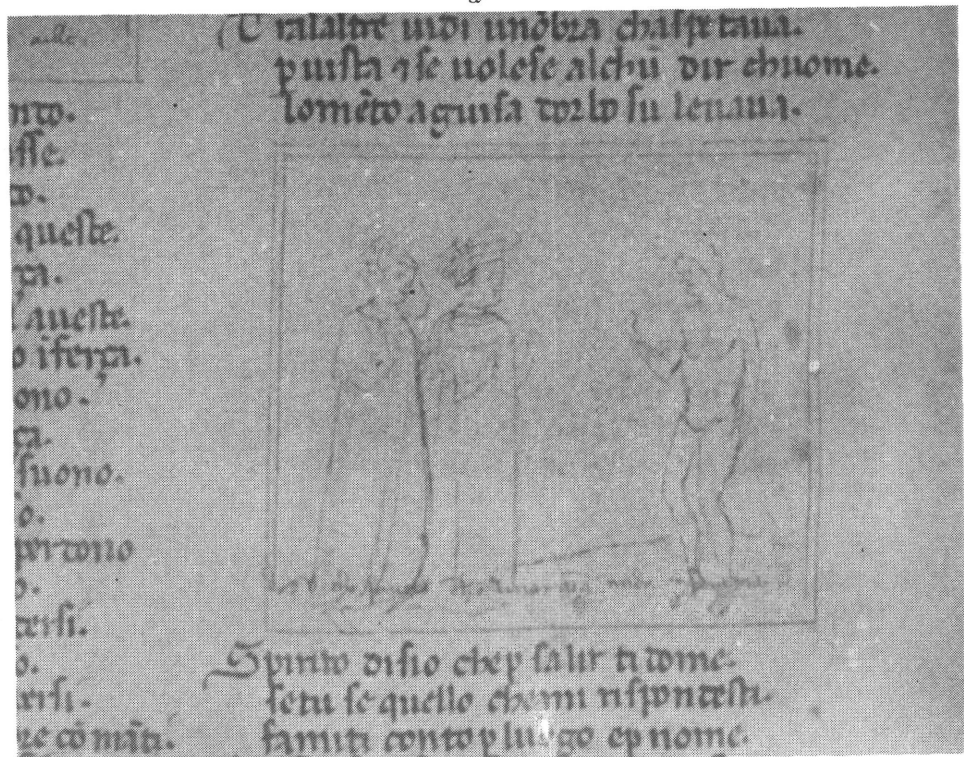 nto.
oſſe.
to.
queſte.
rça.
aueſte.
o iferça.
ono.
ça.
ſuono.
o.
perdono
o.
terſi.
o.
re cōmāti.
Tralaltre uidi unōbra chaſpetaua.
p uiſta ⁊ ſe uoleſe alchū dir chuome.
lomēto aguiſa dorlo ſu leuaua.
Spirito diſio chep ſalir ti dome.
ſetu ſe quello chemi riſpondeſti.
famiti conto p luogo ep nome.